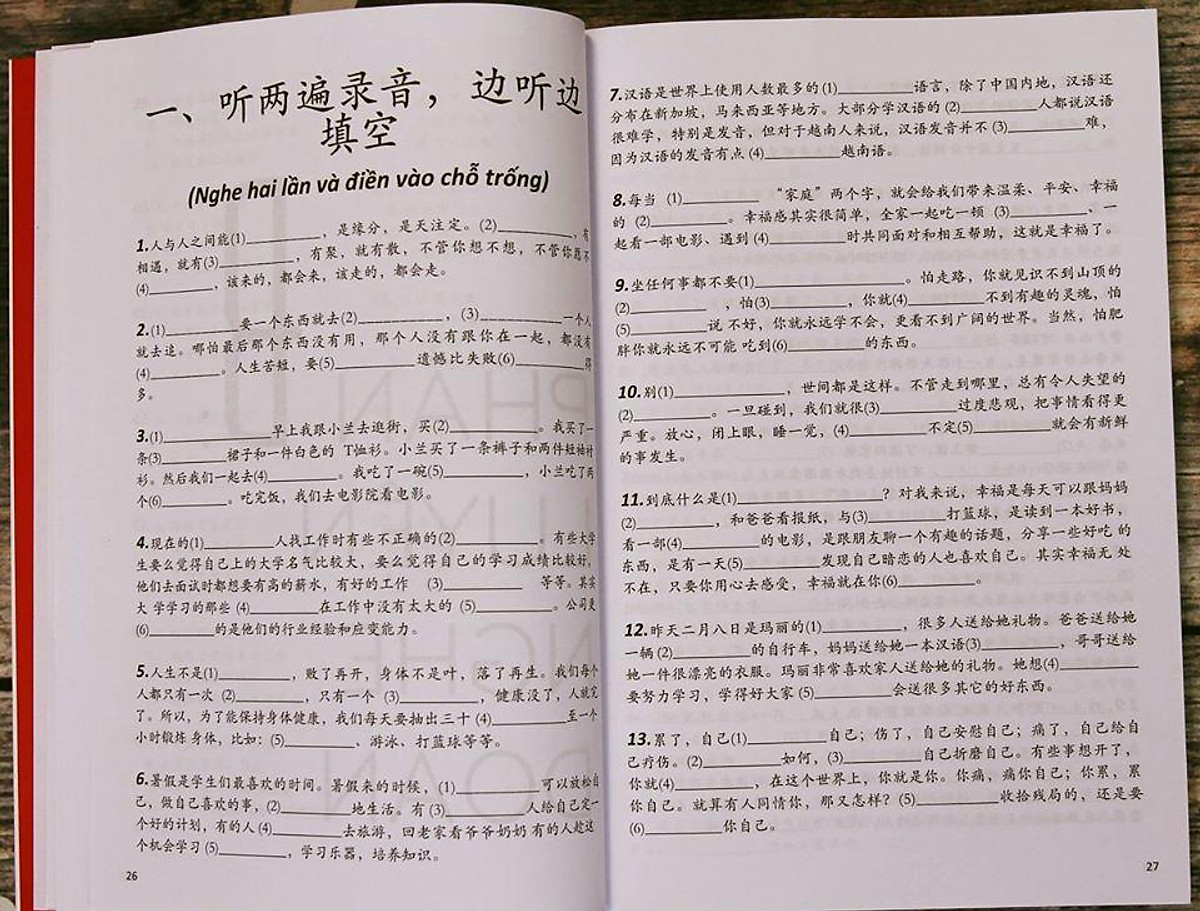 一、听两遍录音，边听边
填空
(Nghe hai lần và điền vào chỗ trống)
1.人与人之间能(1)__________，是缘分，是天注定。(2)__________，有
相遇，就有(3)__________，有聚，就有散，不管你想不想，不管你愿不
(4)________，该来的，都会来，该走的，都会走。
2.(1)__________要一个东西就去(2)__________，(3)__________一个人
就去追。哪怕最后那个东西没有用，那个人没有跟你在一起，都没有
(4)________。人生苦短，要(5)__________遗憾比失败(6)________得
多。
3.(1)____________早上我跟小兰去逛街，买(2)__________。我买了一
条(3)________裙子和一件白色的 T恤衫。小兰买了一条裤子和两件短袖衬
衫。然后我们一起去(4)________。我吃了一碗(5)__________，小兰吃了两
个(6)________。吃完饭，我们去电影院看电影。
4.现在的(1)________人找工作时有些不正确的(2)__________。有些大学
生要么觉得自己上的大学名气比较大，要么觉得自己的学习成绩比较好，
他们去面试时都想要有高的薪水，有好的工作 (3)__________ 等等。其实
大 学学习的那些 (4)________在工作中没有太大的 (5)________。公司更
(6)________的是他们的行业经验和应变能力。
5.人生不是(1)__________，败了再开，身体不是叶，落了再生。我们每个
人都只有一次 (2)________，只有一个 (3)________，健康没了，人就完
了。所以，为了能保持身体健康，我们每天要抽出三十 (4)________至一个
小时锻炼身体，比如：(5)________、游泳、打篮球等等。
6.暑假是学生们最喜欢的时间。暑假来的时候，(1)__________可以放松自
己，做自己喜欢的事，(2)________地生活。有 (3)__________人给自己定一
个好的计划，有的人 (4)________去旅游，回老家看爷爷奶奶 有的人趁这
个机会学习 (5)________，学习乐器，培养知识。
26
7.汉语是世界上使用人数最多的 (1)__________语言，除了中国内地，汉语还
分布在新加坡，马来西亚等地方。大部分学汉语的 (2)__________人都说汉语
很难学，特别是发音，但对于越南人来说，汉语发音并不 (3)__________难，
因为汉语的发音有点 (4)__________越南语。
8.每当 (1)__________ “家庭”两个字，就会给我们带来温柔、平安、幸福
的 (2)__________。幸福感其实很简单，全家一起吃一顿 (3)__________、一
起看一部电影、遇到 (4)__________时共同面对和相互帮助，这就是幸福了。
9.坐任何事都不要(1)__________________。怕走路，你就见识不到山顶的
(2)__________，怕(3)__________，你就(4)__________不到有趣的灵魂，怕
(5)__________说 不好，你就永远学不会，更看不到广阔的世界。当然，怕肥
胖你就永远不可能 吃到(6)__________的东西。
10.别(1)______________，世间都是这样。不管走到哪里，总有令人失望的
(2)__________。一旦碰到，我们就很(3)__________过度悲观，把事情看得更
严重。放心，闭上眼，睡一觉，(4)__________不定(5)__________就会有新鲜
的事发生。
11.到底什么是(1)__________________？对我来说，幸福是每天可以跟妈妈
(2)____________，和爸爸看报纸，与(3)__________打篮球，是读到一本好书，
看一部(4)__________的电影，是跟朋友聊一个有趣的话题，分享一些好吃 的
东西，是有一天(5)__________发现自己暗恋的人也喜欢自己。其实幸福无 处
不在，只要你用心去感受，幸福就在你(6)__________。
12.昨天二月八日是玛丽的(1)__________，很多人送给她礼物。爸爸送给她
一辆(2)____________的自行车，妈妈送给她一本汉语(3)__________，哥哥送给
她一件很漂亮的衣服。玛丽非常喜欢家人送给她的礼物。她想(4)__________
要努力学习，学得好大家 (5)__________会送很多其它的好东西。
13.累了，自己(1)__________自己；伤了，自己安慰自己；痛了，自己给自
己疗伤。(2)__________如何，(3)__________自己折磨自己。有些事想开了，
你就(4)__________，在这个世界上，你就是你。你痛，痛你自己；你累，累
你自己。就算有人同情你，那又怎样？(5)__________收拾残局的，还是要
(6)__________你自己。
27